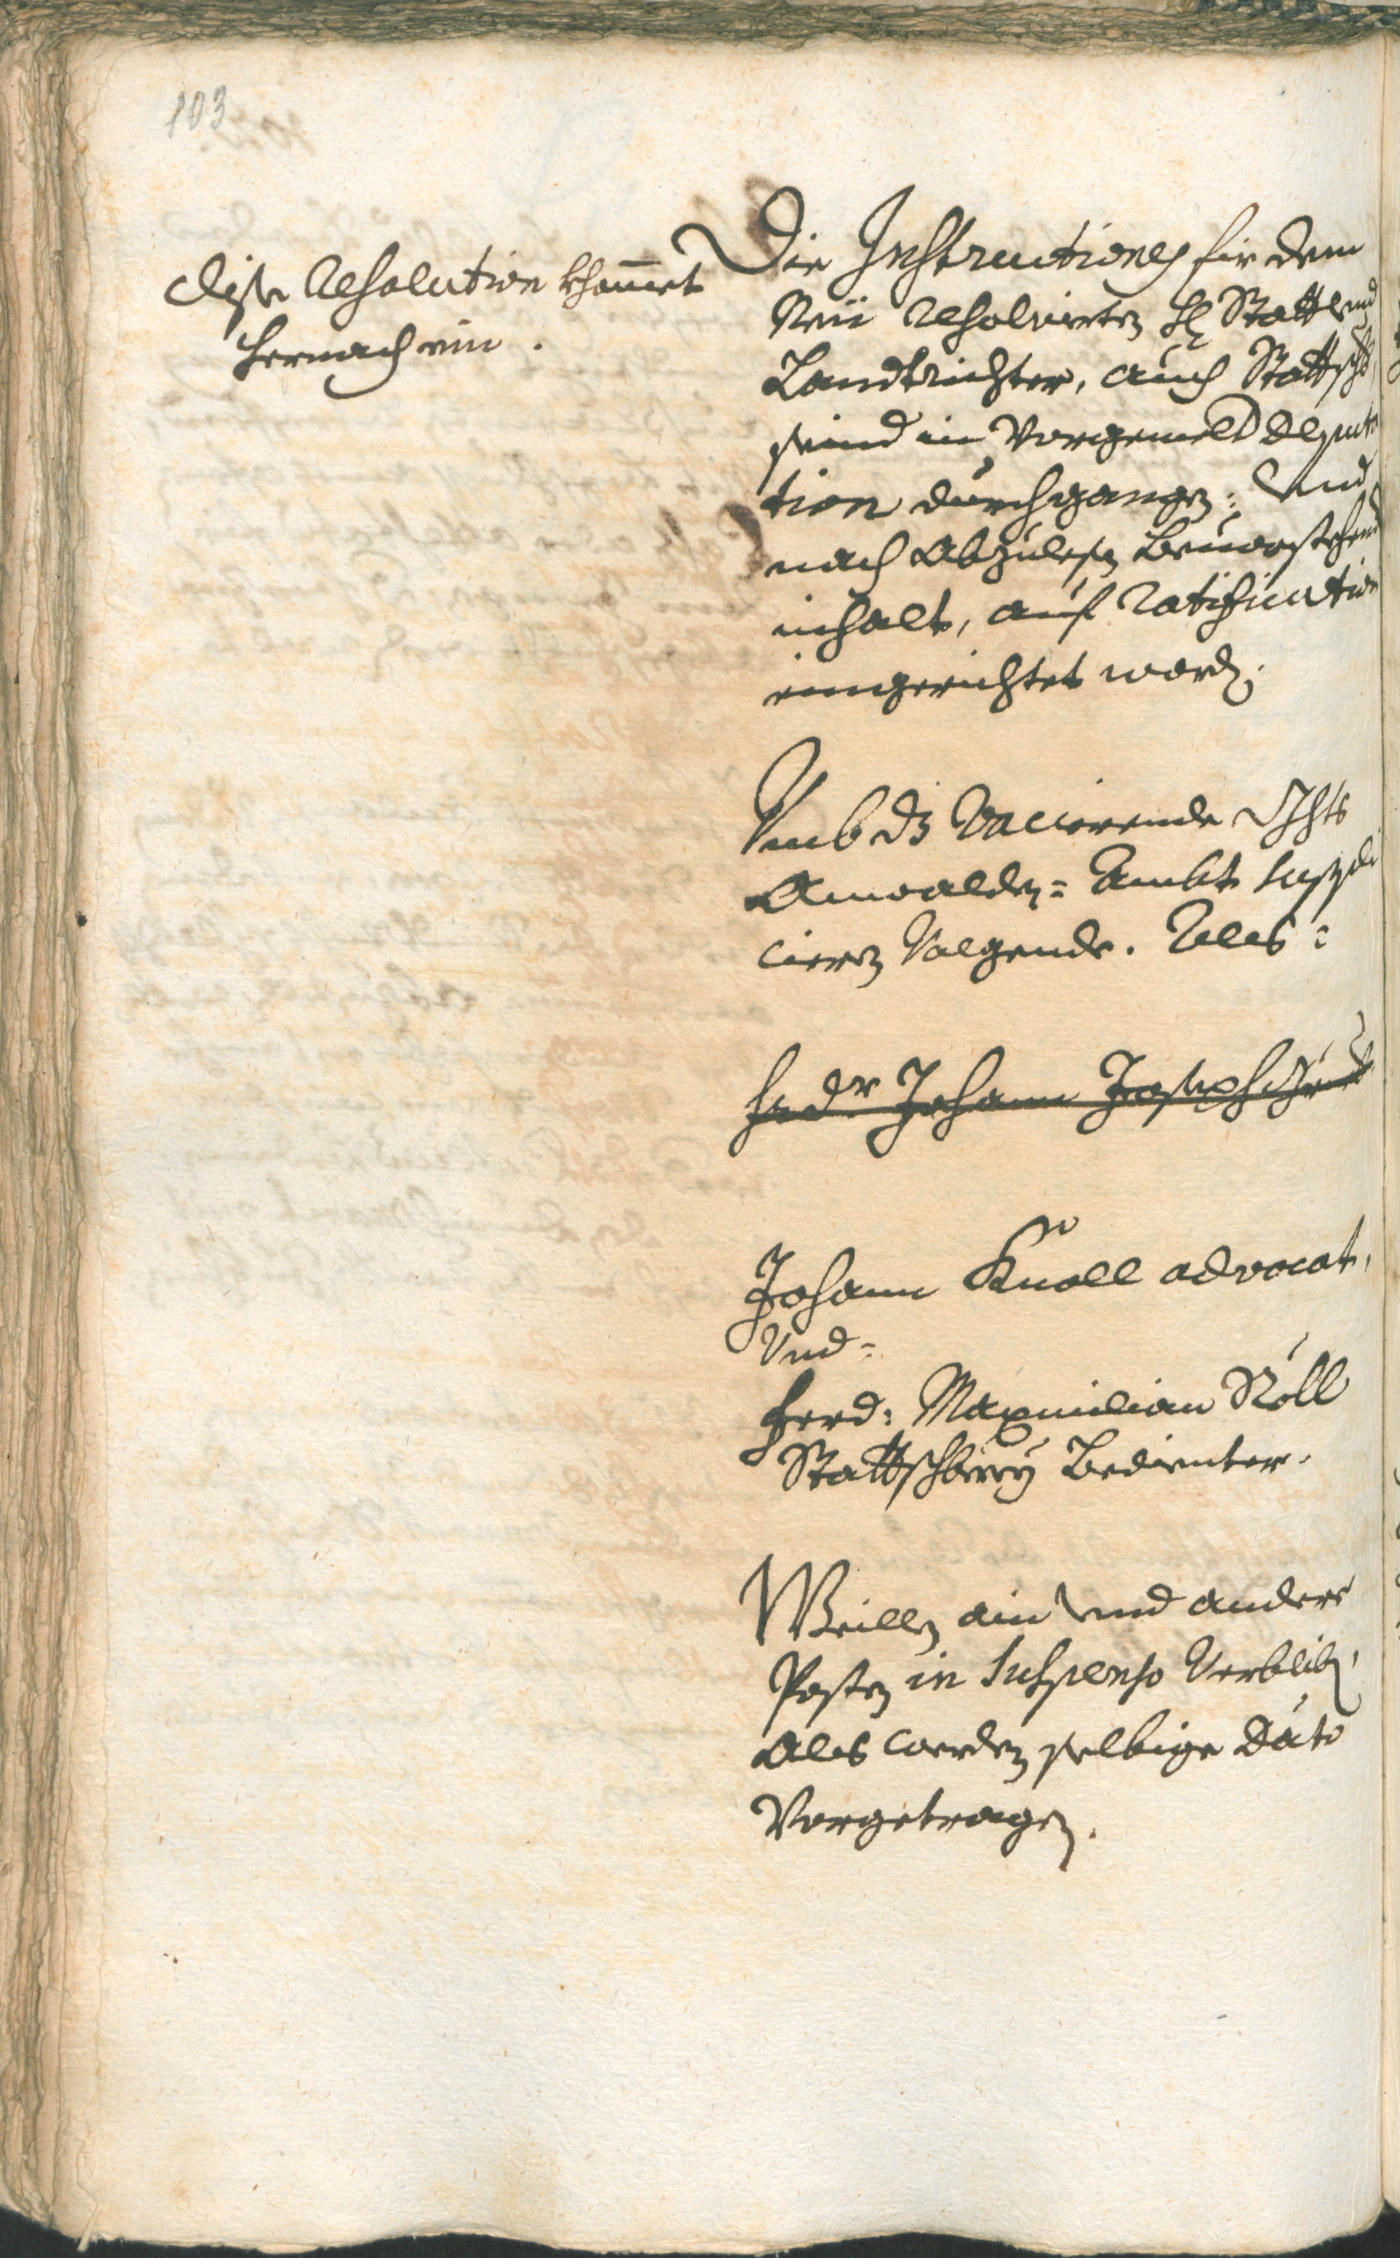 103
dise Resolution khommet
hernach ein.
Die Instructiones fir dem
Neü resolvierten H Statt und
Landtrichter, auch Stattsch
seind in Vorgemelt Deputa
tion durchgangen: Und
nach abzulesen bevorstehend
inhalt, auf Ratification
eingerichtet word.
Umb dz Vacierende
Anwalden= Ambt suppli
cieren Volgende. Alls:
Johann Joseph
Johann Knoll advocat,
Und=
Ferd: Maximilian Röll
Stattschbrey Bedienter.
Weillen ain und andere
Posten in Suspenso Verblib,
Als werden selbige Dato
Vorgetragen.